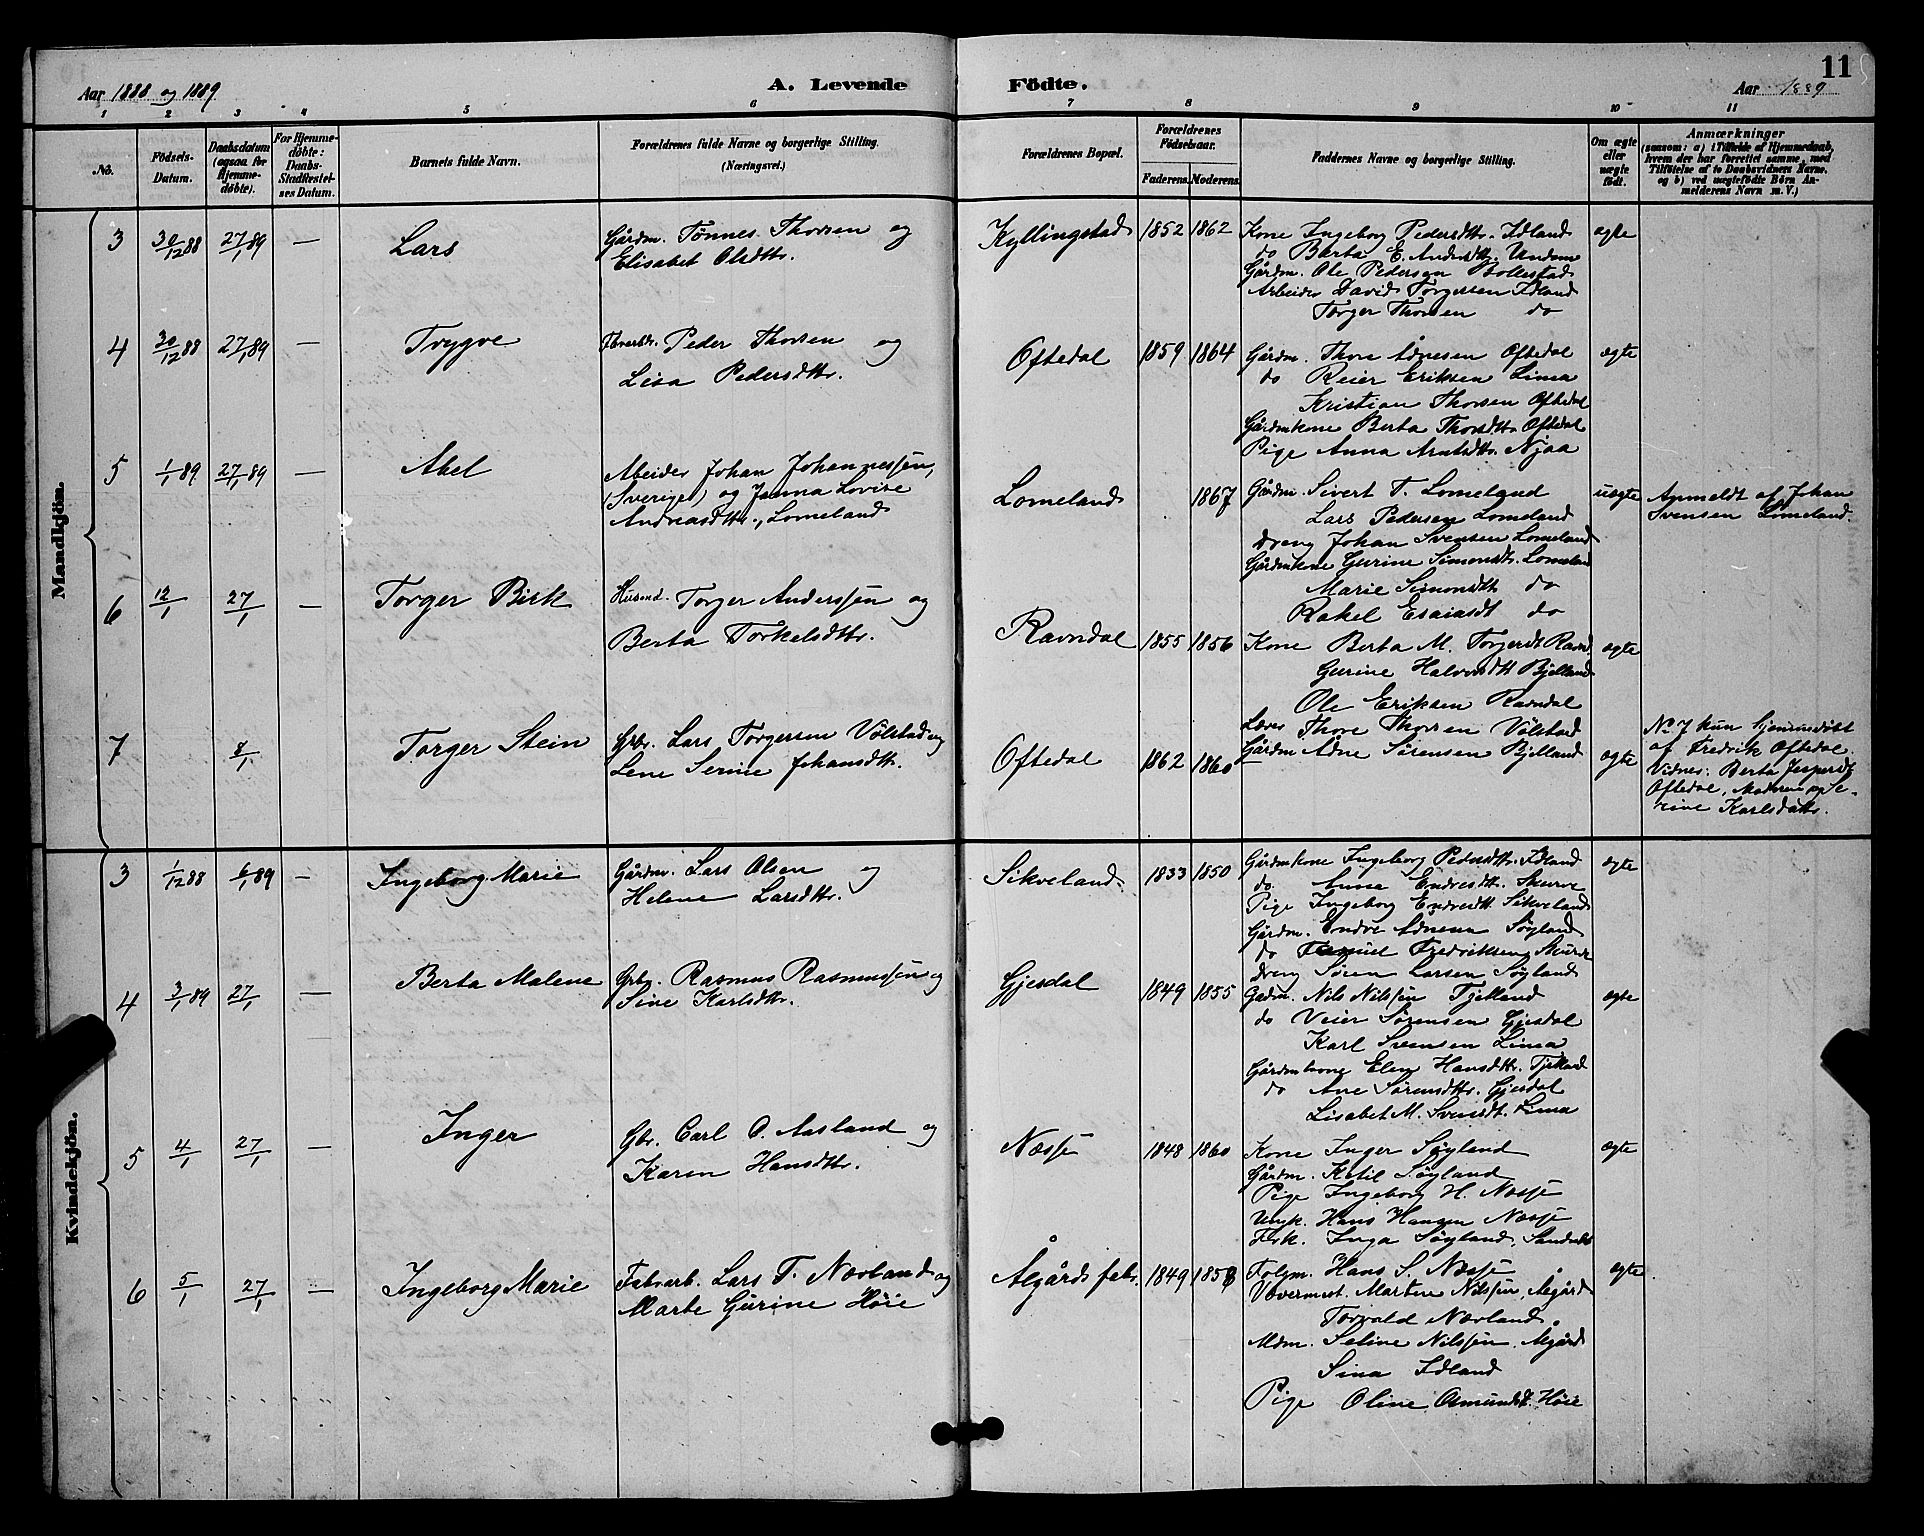 11
Aar 1888 og 1889
A. Levende
Födte.
Aar 1889
1 2 3 4 5 6 7 8 9 10 11
No.
Födsels-Datum.
Daabsdatum (ogsaa for Hjemme-døbte).
For Hjemme-døbte: Daabs-Stadfæstel-ses Datum.
Barnets fulde Navn.
Forældrenes fulde Navne og borgerlige Stilling.
(Næringsvei.)
Forældrenes Bopæl.
Forældrenes Födselsaar.
Faderens. Moderens.
Faddernes Navne og borgerlige Stilling.
Om ægte eller uægte födt.
Anmærkninger
(saasom: a) i Tilfælde af Hjemmedaab, hvem der har forrettet samme, med Tilföielse af to Daabsvidners Navne. og b) ved uægtefödte Börn An-melderens Navn m. V.)
Mandkjön.
3 30/12 88 27/1 89 — Lars
Gårdm. Tönnes Thorsen og
Elisabet Olsdtr.
Kyllingstad 1852 1862
Kone Ingeborg Pedersdtr. Idland
do Berta E. Andersdtr.
Gårdm. Ole Pedersen Bollestad
Arbeider David Torgersen Idland
Torger Thorsen do
ægte
4 30/12 88 27/1 89 — Trygve
Peder Thorsen og
Lisa Pedersdtr.
Oftedal 1859 1864
Gårdm. Thore Ådnesen Oftedal
do Reier Eriksen Lima
Kristian Thorsen Oftedal
Gårdmkone Berta Thorsdtr. Oftedal
Pige Anna Arntsdtr. Njaa
ægte
5 1/1 89 27/1 89 — Abel
Abeider Johan Johannessen,
(Sverige) og Janna Lovise
Andreasdtr., Lomeland
Lomeland 1867
Gårdm. Sivert T. Lomeland
Lars Pedersen Lomeland
dreng Johan Svensen Lomeland
Gårdmkone Gurine Simonsdt. Lomeland
Marie Simonsdt do
Rakel Esaiasdt do
uægte
Anmeldt af Johan
Svensen Lomeland.
6 12/1 27/1 — Torger Birk
Husmd. Torger Anderssen og
Berta Torkelsdtr.
Ravndal 1855 1856
Kone Berta M. Torgersdt Ravnd.
Gurine Halvorsdt Bjelland
Ole Eriksen Ravndal
Lærer Thore Thorsen Völstad
Gårdm Ådne Sörensen Bjelland
ægte
7 8/1 Torger Stein
Grbr. Lars Torgersen Völstad og
Lene Serine Johansdtr.
Oftedal 1862 1860
ægte
No 7 kun hjemmedöbt
af Fredrik Oftedal.
Vidner: Berta Jespersdt
Oftedal, Moderen og Se-
rine Karlsdatter.
Kvindekjön.
3 1/12 88 6/1 89 — Ingeborg Marie
Gårdm. Lars Olsen og
Helene Larsdtr.
Sikveland 1833 1850
Gårdmkone Ingeborg Pedersdtr. Idland
do. Anna Endresdtr. Skurve
Pige Ingeborg Endresdtt. Sikveland
Gårdm. Endre Ådnesen Söyland
do Fredriksen Skurve
dreng Sören Larsen Söyland
ægte
4 3/1 89 27/1 — Berta Malene
Grbr. Rasmus Rasmussen og
Sine Karlsdtr.
Gjesdal 1849 1855
Gadm. Nils Nilssen Tjelland
do Veier Sörensen Gjesdal
Karl Svensen Lima
Gårdmkone Elen Hansdtr. Tjelland
do Ane Sörensdtr. Gjesdal
Lisabet M. Svensdt. Lima
ægte
5 4/1 27/1 — Inger
Gbr. Carl O. Aasland og
Karen Hansdtr.
Næsse 1848 1860
Kone Inger Söyland
Gårdm. Ketil Söyland
Pige Ingeborg H. Næsse
Ungk. Hans Hansen Næsse
Inga Söyland, Sandnes
ægte
6 5/1 27/1 — Ingeborg Marie
Fabrarb. Lars T. Nærland og
Marte Gurine Höie
Ålgård fabr. 1849 1858
Folgm. Hans S. Næsse
Vævermest. Martin Nilssen, Ålgård
Torvald Nærland
Mdm. Seline Nilssen, Ålgård
Sina Idland
Pige Oline Osmundsdt. Höie
ægte